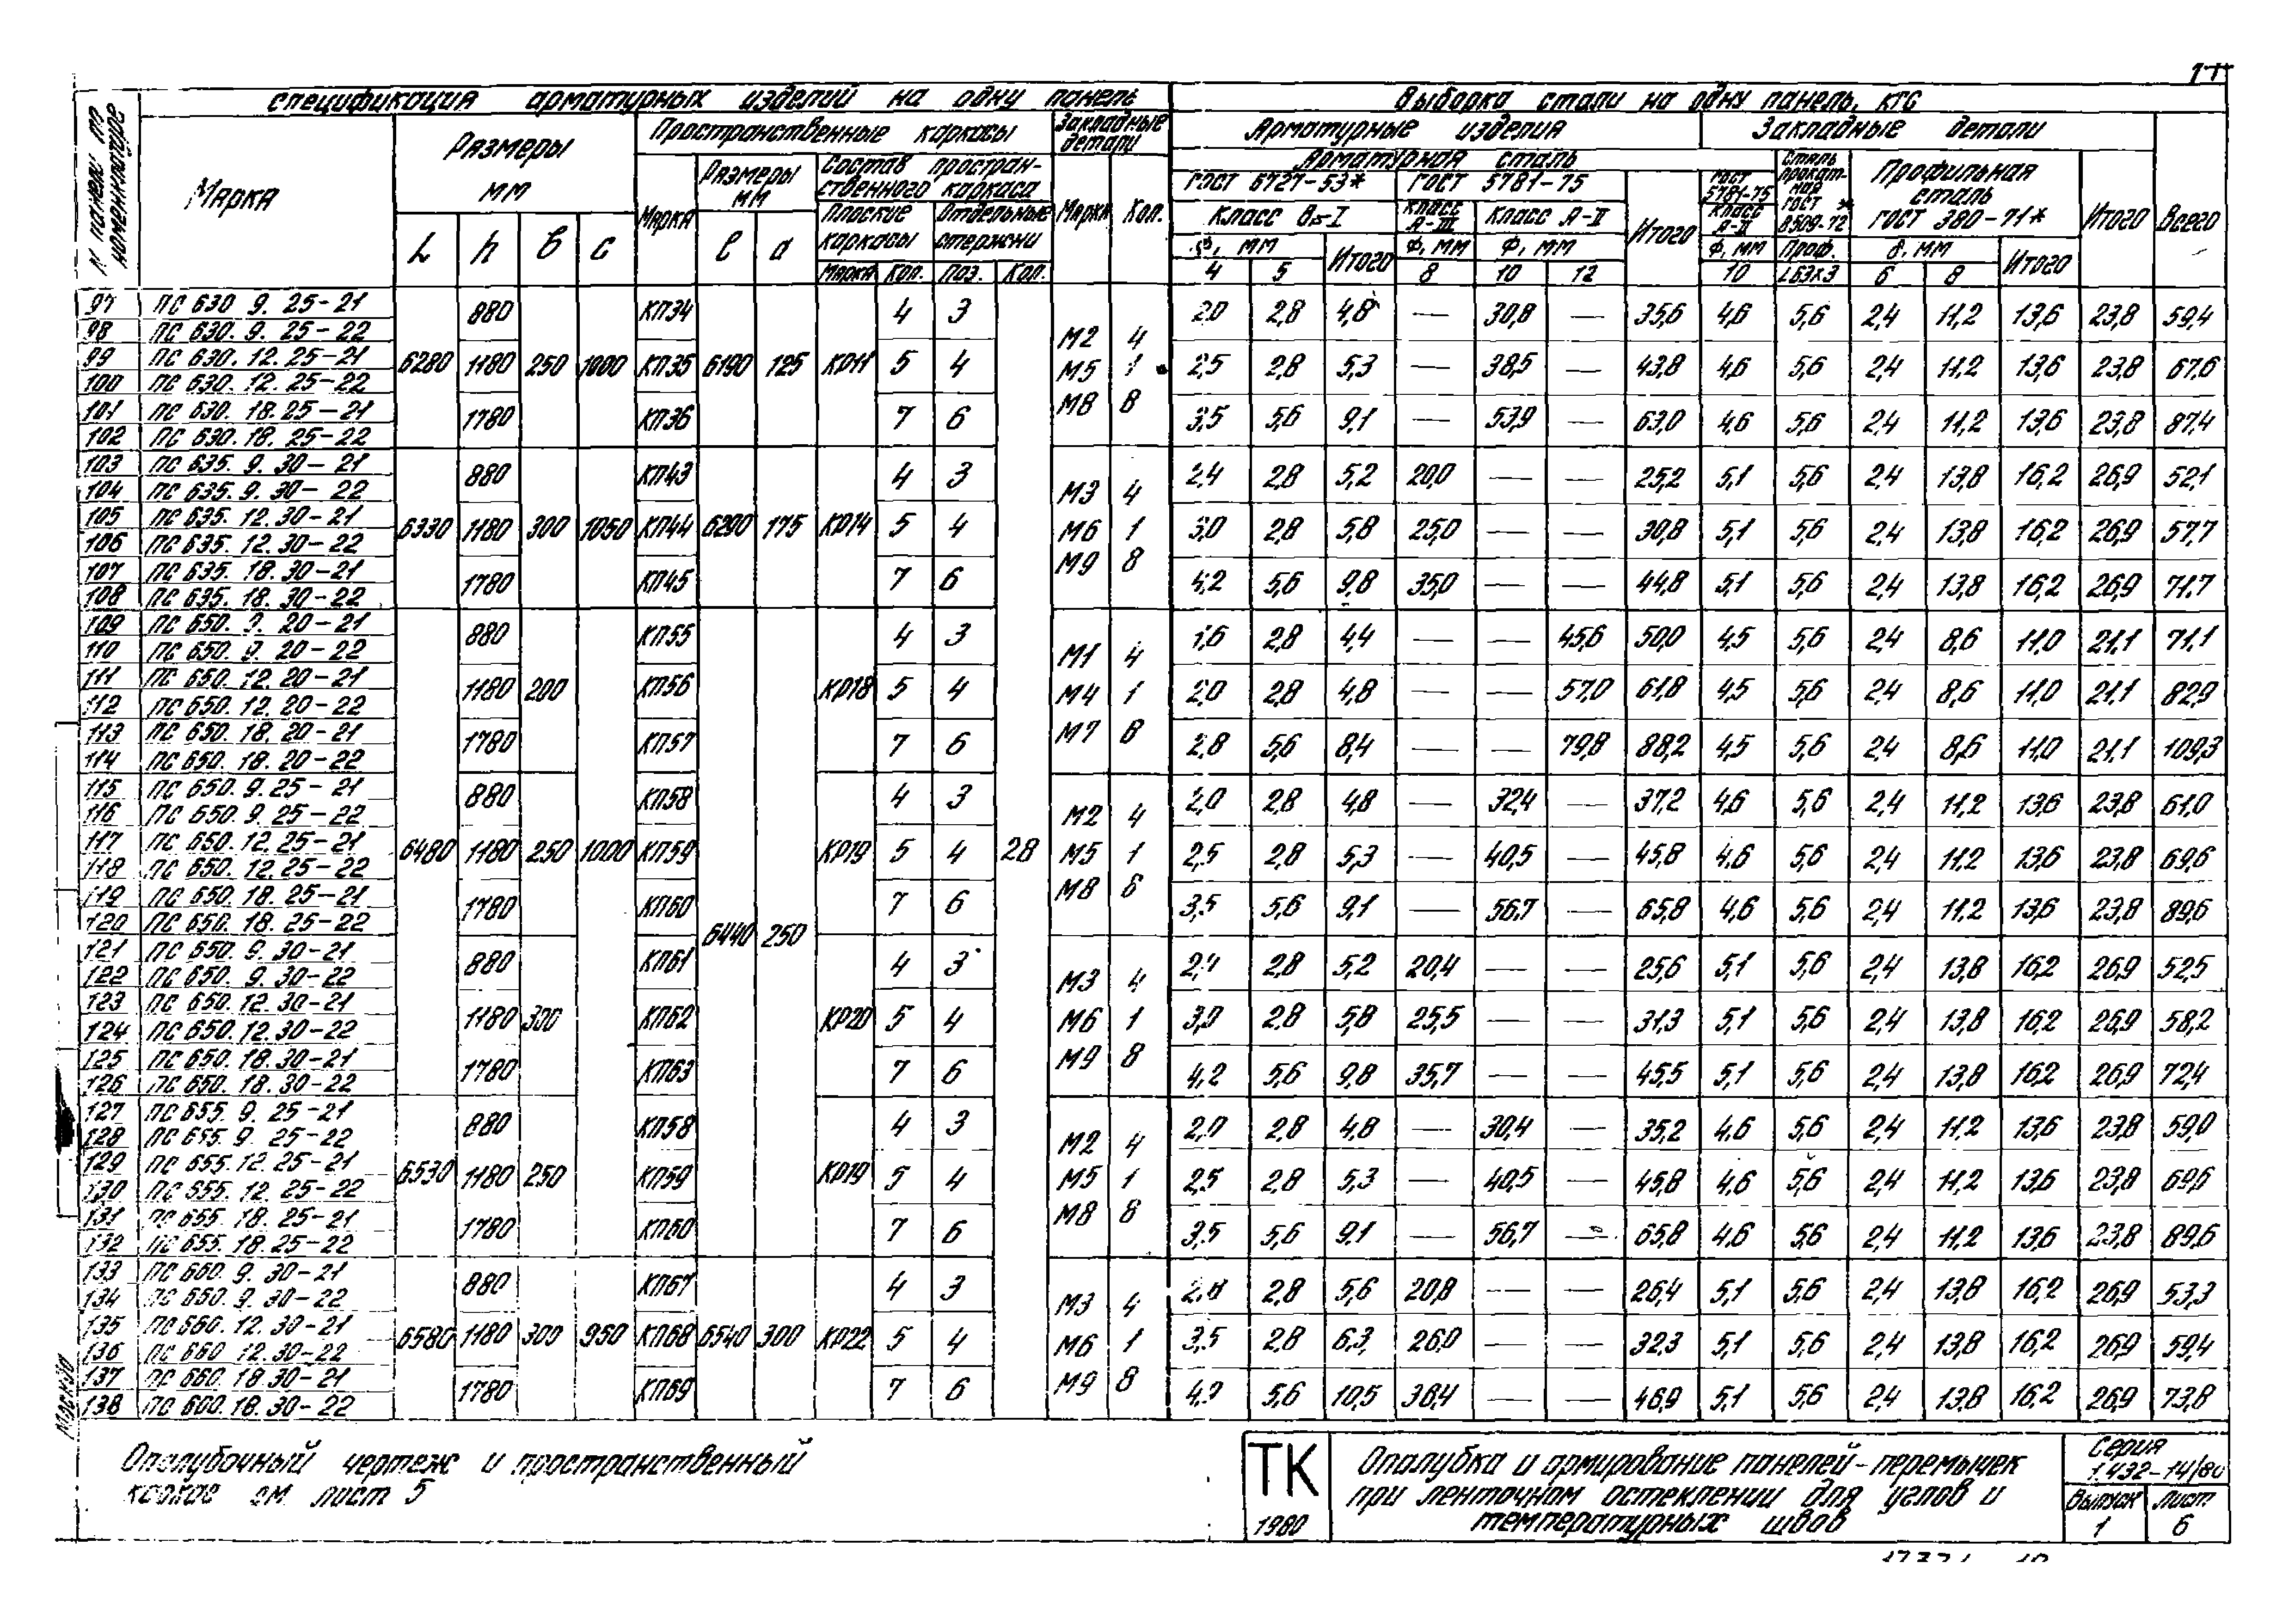 спецификация арматурных изделий на одну панель
Выборка стали на одну панель, кгс
N панели по номенклатуре
Марка
Размеры мм
Пространственные каркасы
Закладные детали
Арматурные изделия
Закладные детали
Всего
L h б с
Марка
Размеры мм
l a
Состав пространственного каркаса
Плоские каркасы
Отдельные стержни
Марка Кол. Поз. Кол.
Марка Кол.
Арматурная сталь
ГОСТ 6727-53* ГОСТ 5781-75
Класс Вр-I
Класс А-III
Класс А-II
Ф, мм Итого Ф, мм Ф, мм Итого
4 5 8 10 12
ГОСТ 5781-75 Класс А-II Ф, мм 10
Сталь прокатная ГОСТ * 8509-72 Проф. L63x3
Профильная сталь ГОСТ 380-71*
δ, мм Итого
6 8
Итого
97 ПС 630 9. 25-21 880 КП34 4 3 2,0 2,8 4,8 — 30,8 — 35,6 4,6 5,6 2,4 11,2 13,6 23,8 59,4
98 ПС 630. 9. 25-22
М2 4
99 ПС 630. 12. 25-21 6280 1180 250 1000 КП35 6190 125 КР11 5 4 2,5 2,8 5,3 — 38,5 — 43,8 4,6 5,6 2,4 11,2 13,6 23,8 67,6
100 ПС 630. 12. 25-22 М5 1
101 ПС 630. 18. 25-21 1780 КП36 7 6 М8 8 3,5 5,6 9,1 — 53,9 — 63,0 4,6 5,6 2,4 11,2 13,6 23,8 87,4
102 ПС 630. 18. 25-22
103 ПС 635. 9. 30-21 880 КП43 4 3 2,4 2,8 5,2 20,0 — — 25,2 5,1 5,6 2,4 13,8 16,2 26,9 52,1
104 ПС 635. 9. 30-22 М3 4
105 ПС 635. 12. 30-21 6330 1180 300 1050 КП44 6290 175 КР14 5 4 М6 1 3,0 2,8 5,8 25,0 — — 30,8 5,1 5,6 2,4 13,8 16,2 26,9 57,7
106 ПС 635. 12. 30-22
107 ПС 635. 18. 30-21 1780 КП45 7 6 М9 8 4,2 5,6 9,8 35,0 — — 44,8 5,1 5,6 2,4 13,8 16,2 26,9 71,7
108 ПС 635. 18. 30-22
109 ПС 650. 9. 20-21 880 КП55 4 3 1,6 2,8 4,4 — — 45,6 50,0 4,5 5,6 2,4 8,6 11,0 21,1 71,1
110 ПС 650. 9. 20-22 М1 4
111 ПС 650. 12. 20-21 1180 200 КП56 КР18 5 4 М4 1 2,0 2,8 4,8 — — 57,0 61,8 4,5 5,6 2,4 8,6 11,0 21,1 82,9
112 ПС 650. 12. 20-22
113 ПС 650. 18. 20-21 1780 КП57 7 6 М7 8 2,8 5,6 8,4 — — 79,8 88,2 4,5 5,6 2,4 8,6 11,0 21,1 109,3
114 ПС 650. 18. 20-22
115 ПС 650. 9. 25-21 880 КП58 4 3 2,0 2,8 4,8 — 32,4 — 37,2 4,6 5,6 2,4 11,2 13,6 23,8 61,0
116 ПС 650. 9. 25-22 М2 4
117 ПС 650. 12. 25-21 6480 1180 250 1000 КП59 КР19 5 4 28 М5 1 2,5 2,8 5,3 — 40,5 — 45,8 4,6 5,6 2,4 11,2 13,6 23,8 69,6
118 ПС 650. 12. 25-22
119 ПС 650. 18. 25-21 1780 КП60 7 6 М8 8 3,5 5,6 9,1 — 56,7 — 65,8 4,6 5,6 2,4 11,2 13,6 23,8 89,6
120 ПС 650. 18. 25-22
6440 250
121 ПС 650. 9. 30-21 880 КП61 4 3 2,4 2,8 5,2 20,4 — — 25,6 5,1 5,6 2,4 13,8 16,2 26,9 52,5
122 ПС 650. 9. 30-22 М3 4
123 ПС 650. 12. 30-21 1180 300 КП62 КР20 5 4 М6 1 3,0 2,8 5,8 25,5 — — 31,3 5,1 5,6 2,4 13,8 16,2 26,9 58,2
124 ПС 650. 12. 30-22
125 ПС 650. 18. 30-21 1780 КП63 7 6 М9 8 4,2 5,6 9,8 35,7 — — 45,5 5,1 5,6 2,4 13,8 16,2 26,9 72,4
126 ПС 650. 18. 30-22
127 ПС 655. 9. 25-21 880 КП58 4 3 2,0 2,8 4,8 — 30,4 — 35,2 4,6 5,6 2,4 11,2 13,6 23,8 59,0
128 ПС 655. 9. 25-22 М2 4
129 ПС 655. 12. 25-21 6530 1180 250 КП59 КР19 5 4 М5 1 2,5 2,8 5,3 — 40,5 — 45,8 4,6 5,6 2,4 11,2 13,6 23,8 69,6
130 ПС 655. 12. 25-22
131 ПС 655. 18. 25-21 1780 КП60 7 6 М8 8 3,5 5,6 9,1 — 56,7 — 65,8 4,6 5,6 2,4 11,2 13,6 23,8 89,6
132 ПС 655. 18. 25-22
133 ПС 660. 9. 30-21 880 КП67 4 3 2,8 2,8 5,6 20,8 — — 26,4 5,1 5,6 2,4 13,8 16,2 26,9 53,3
134 ПС 660. 9. 30-22 М3 4
135 ПС 660. 12. 30-21 6580 1180 300 950 КП68 6540 300 КР22 5 4 М6 1 3,5 2,8 6,3 26,0 — — 32,3 5,1 5,6 2,4 13,8 16,2 26,9 59,4
136 ПС 660 12. 30-22
137 ПС 660. 18. 30-21 1780 КП69 7 6 М9 8 4,9 5,6 10,5 36,4 — — 46,9 5,1 5,6 2,4 13,8 16,2 26,9 73,8
138 ПС 660. 18. 30-22
Опалубочный чертеж и пространственный
каркас см. лист 5
ТК
1980
Опалубка и армирование панелей-перемычек
при ленточном остеклении для углов и
температурных швов
Серия
1.432-14/80
Выпуск Лист
1 6